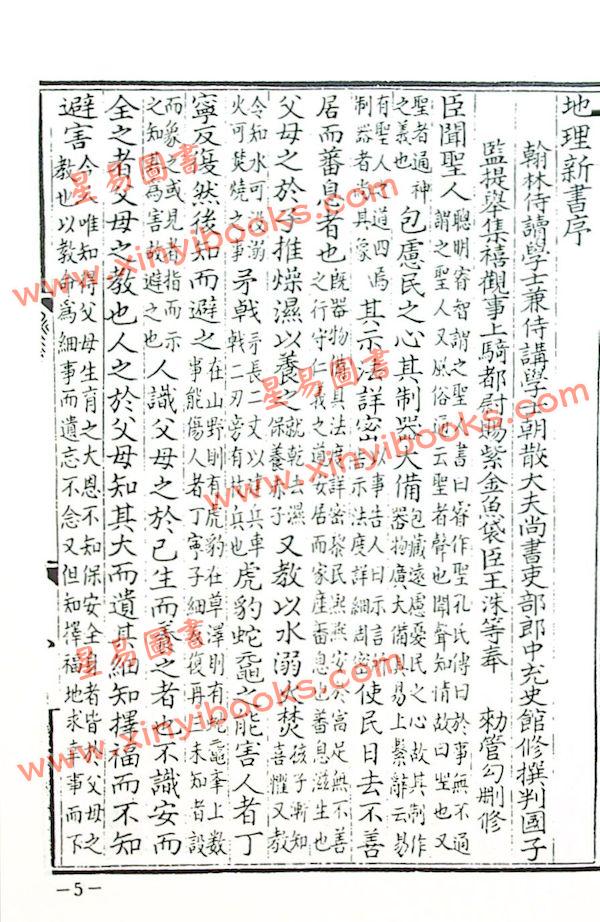 地理新書序
翰林侍讀學士兼侍講學士朝散大夫尚書吏部郎中充史館修撰判國子
監提舉集禧觀事上騎都尉賜紫金魚袋臣王洙等奉 勑管勾刪修
臣聞聖人聰明睿智謂之聖人書曰睿作聖孔氏傳曰於事無不通謂之聖人又風俗通云聖者聲也聞聲知情故曰聖也又
聖者通神之義也包慮民之心其制器大備包藏遠慮憂民之心故其制作器物廣大備具易上繫辭云易
有聖人之道四焉制器者尚其象其示法詳密以事告人曰示言詔告示法度詳細周密使民日去不善
居而蕃息者也既器物備具法度詳密黎民然安於高足無不善之行守仁義之道安居而家產蕃息也蕃息滋生也
父母之於子推燥濕以養之就乾去濕保養赤子又教以水溺火焚孩子漸知喜懼又教
令知水可没溺火可焚燒之事矛戟矛長二丈以建兵車戟二刃旁有枝兵也虎豹蛇黿之能害人者丁
寧反復然後知而避之在山野則有虎豹在草澤則有蛇黿奉上數事能傷人者丁寧子細反復再三未知者設
而象之或見者指而示之知其為害故避之也人識父母之於己生而養之者也不識安而
全之者父母之教也人之於父母知其大而遺其細知擇福而不知
避害今云唯知得父母生育之大恩不知保安全身者皆於父母之教也以教命為細事而遺忘不念又但知擇福地求幸事而下
—5—
星易圖書
www.xinyibooks.com
星易圖書
www.xinyibooks.com
星易圖書
www.xinyibooks.com